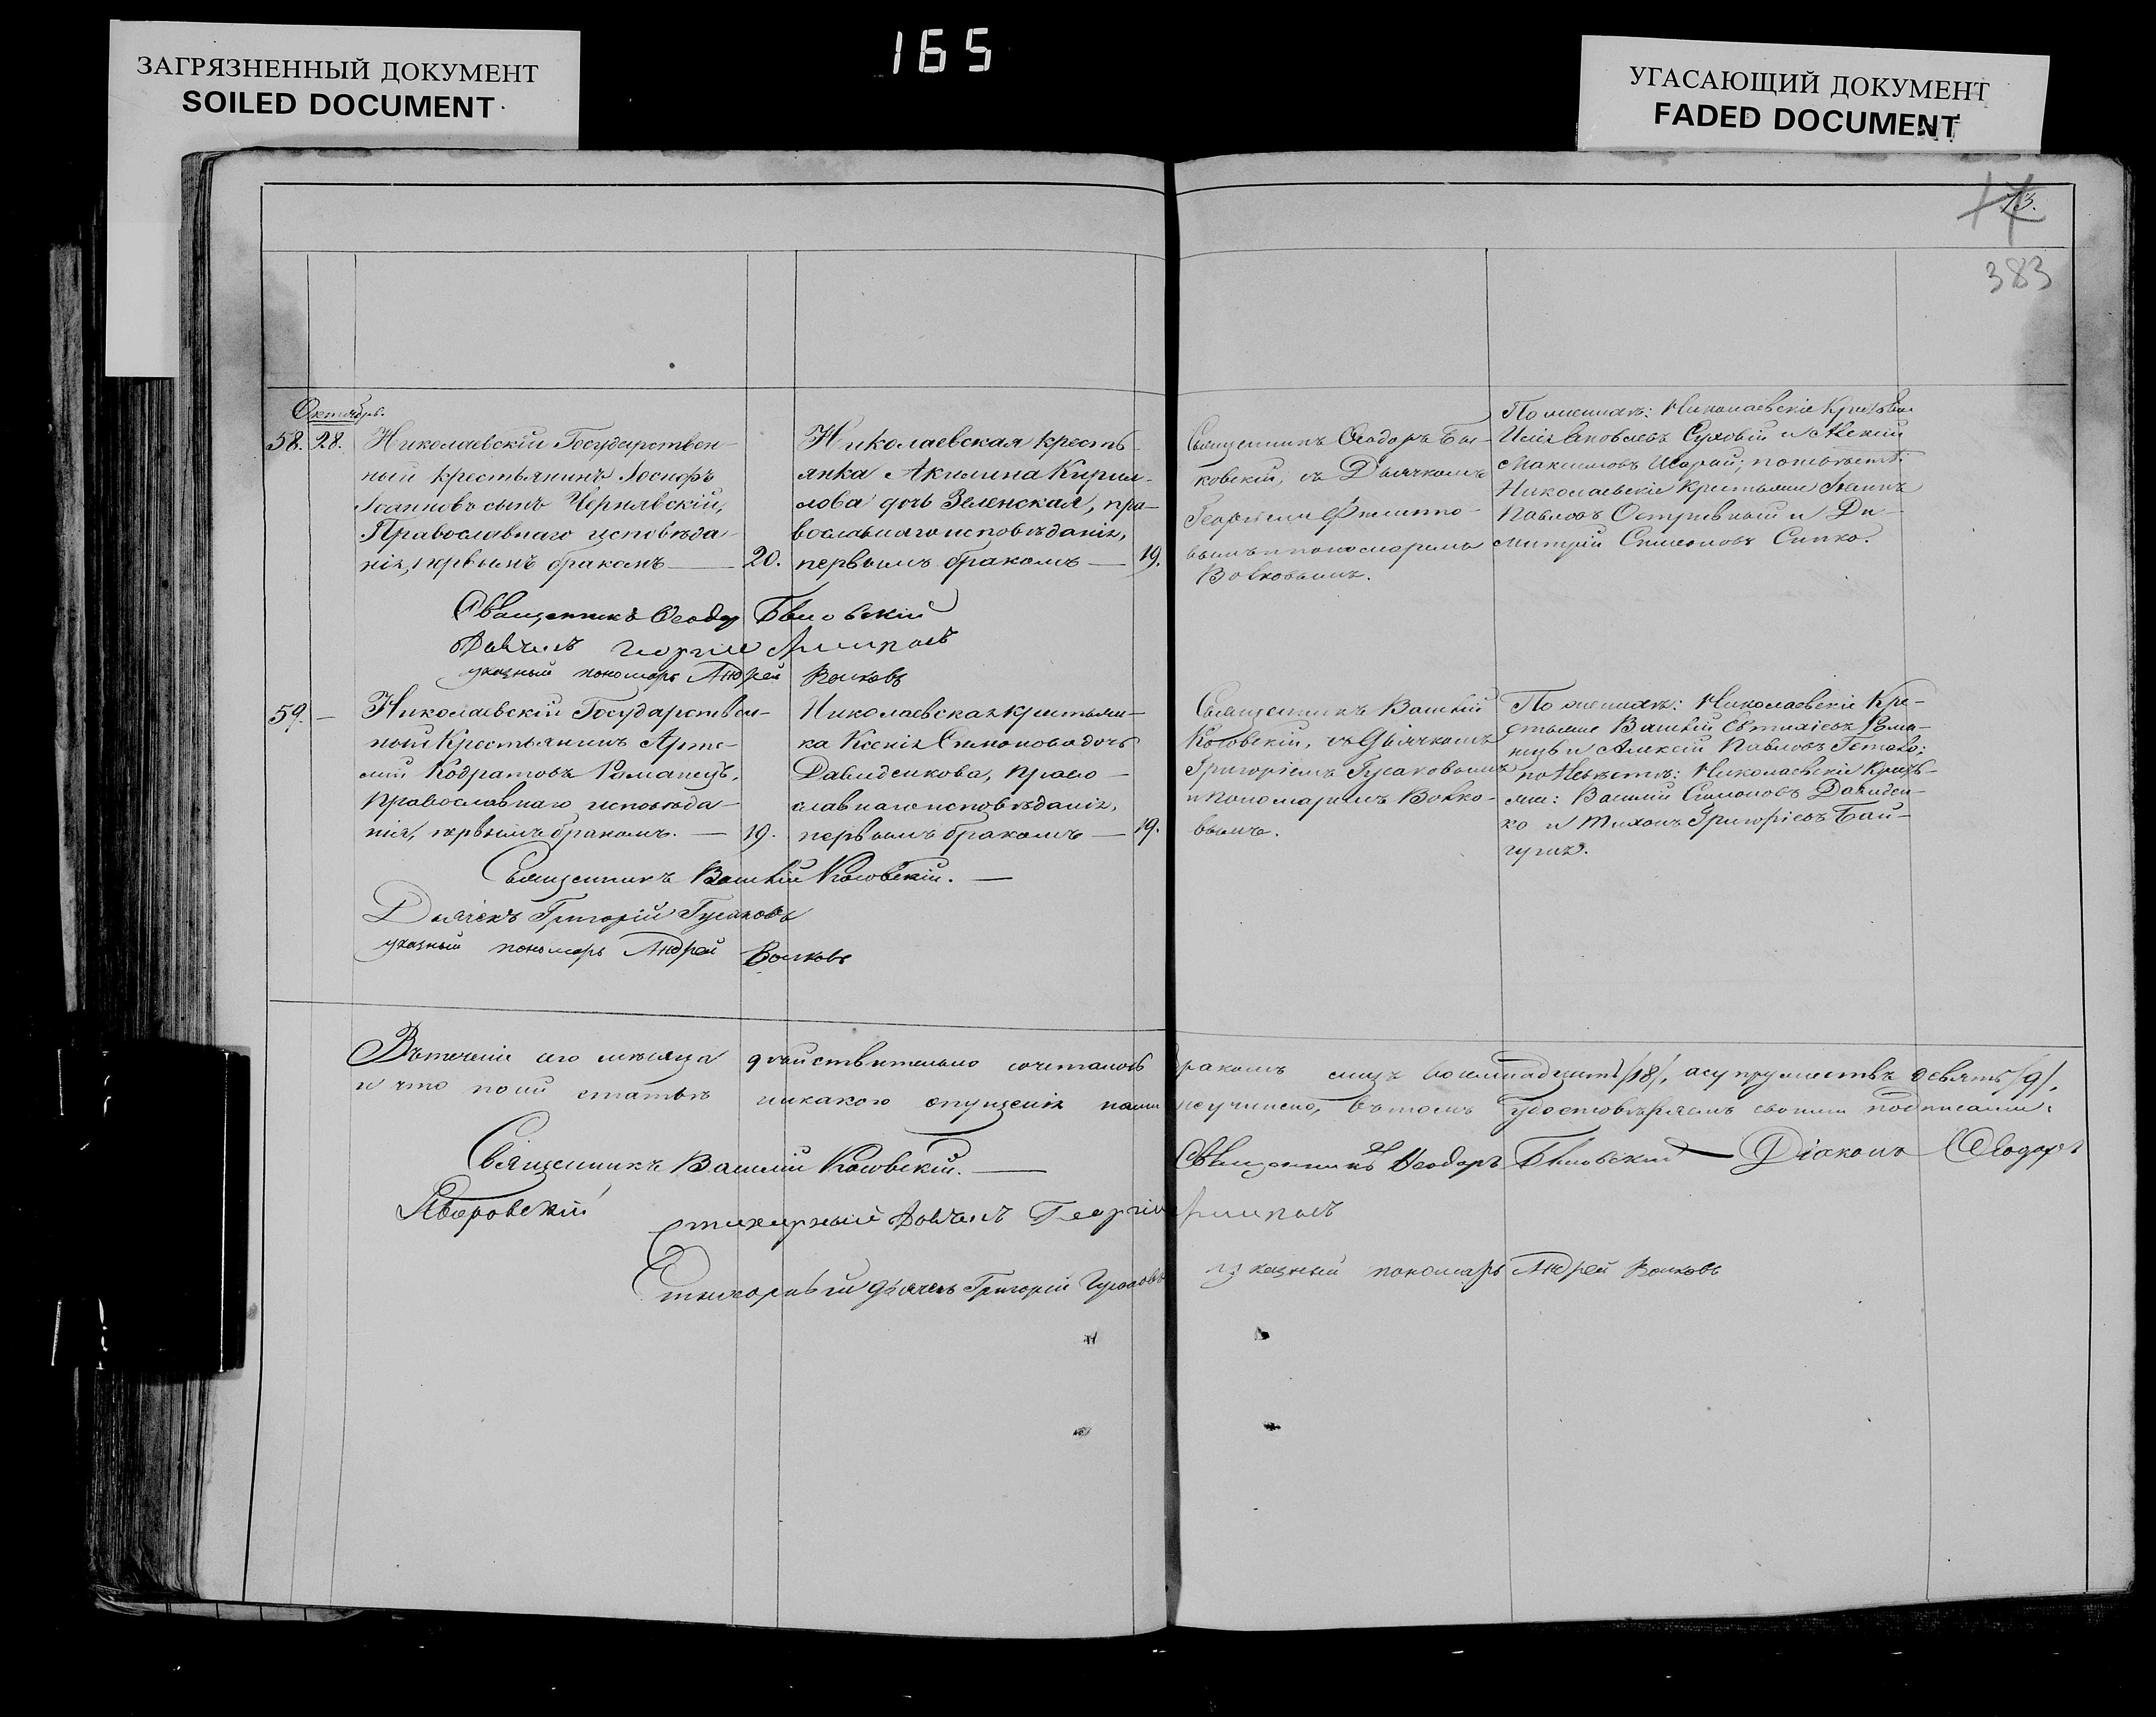 ЗАГРЯЗНЕННЫЙ ДОКУМЕНТ
SOILED DOCUMENT
165
УГАСАЮЩИЙ ДОКУМЕНТ
FADED DOCUMENT
383
Октябрь.
58. 28.
Николаевскій Государствен-
ный крестьянинъ Іосифъ
Іоанновъ сынъ Чернявскій,
Православнаго исповѣда-
нія, первымъ бракомъ — 20.
Николаевская кресть-
янка Акилина Кирил-
лова дочь Зеленская, пра-
вославнаго исповѣданія,
первымъ бракомъ — 19.
Священникъ Ѳеодоръ
ковскій, съ Дьячкомъ
Георгіемъ Филиппо-
вымъ и пономаремъ
Волковымъ.
По женихѣ: Николаевскіе
Суховій и Алексій
Максимовъ по невѣстѣ:
Николаевскіе крестьяне Іоаннъ
Павловъ и Ди-
митрій Симеоновъ Сипко.
Священникъ Ѳеодор
Георгій
указный пономарь Андрей Волковъ
59. —
Николаевскій Государствен-
ный Крестьянинъ Арте-
мій Кодратовъ Романецъ,
православнаго исповѣда-
нія, первымъ бракомъ. — 19.
Николаевская крестьян-
ка Ксенія Симонова дочь
Давиденкова, право-
славнаго исповѣданія,
первымъ бракомъ — 19.
Священникъ Василій
Коговскій, съ Дьячкомъ
Григоріемъ Гусаковымъ
и пономаремъ Волко-
вымъ.
По женихѣ: Николаевскіе Кре-
стьяне Василій Рома-
нецъ и Алексій Павловъ
по Невѣстѣ: Николаевскіе
Василій Симоновъ Давиден-
ко и Тихонъ Григорьевъ
Священникъ Василій
Дьячекъ Григорій Гусаковъ
указный пономарь Андрей Волковъ
Въ теченіе сего мѣсяца дѣйствительно сочеталось бракомъ лицъ восемнадцать /18/, а супружествъ девять /9/,
и что по сей статьѣ никакого опущенія нами не учинено, въ томъ удостовѣряемъ своими подписами:
Священникъ Василій
Священникъ Ѳеодоръ Діаконъ Ѳеодоръ
Яворовскій
Стихарный Георгій
Стихарный дьячекъ Григорій Гусаковъ указный пономарь Андрей Волковъ